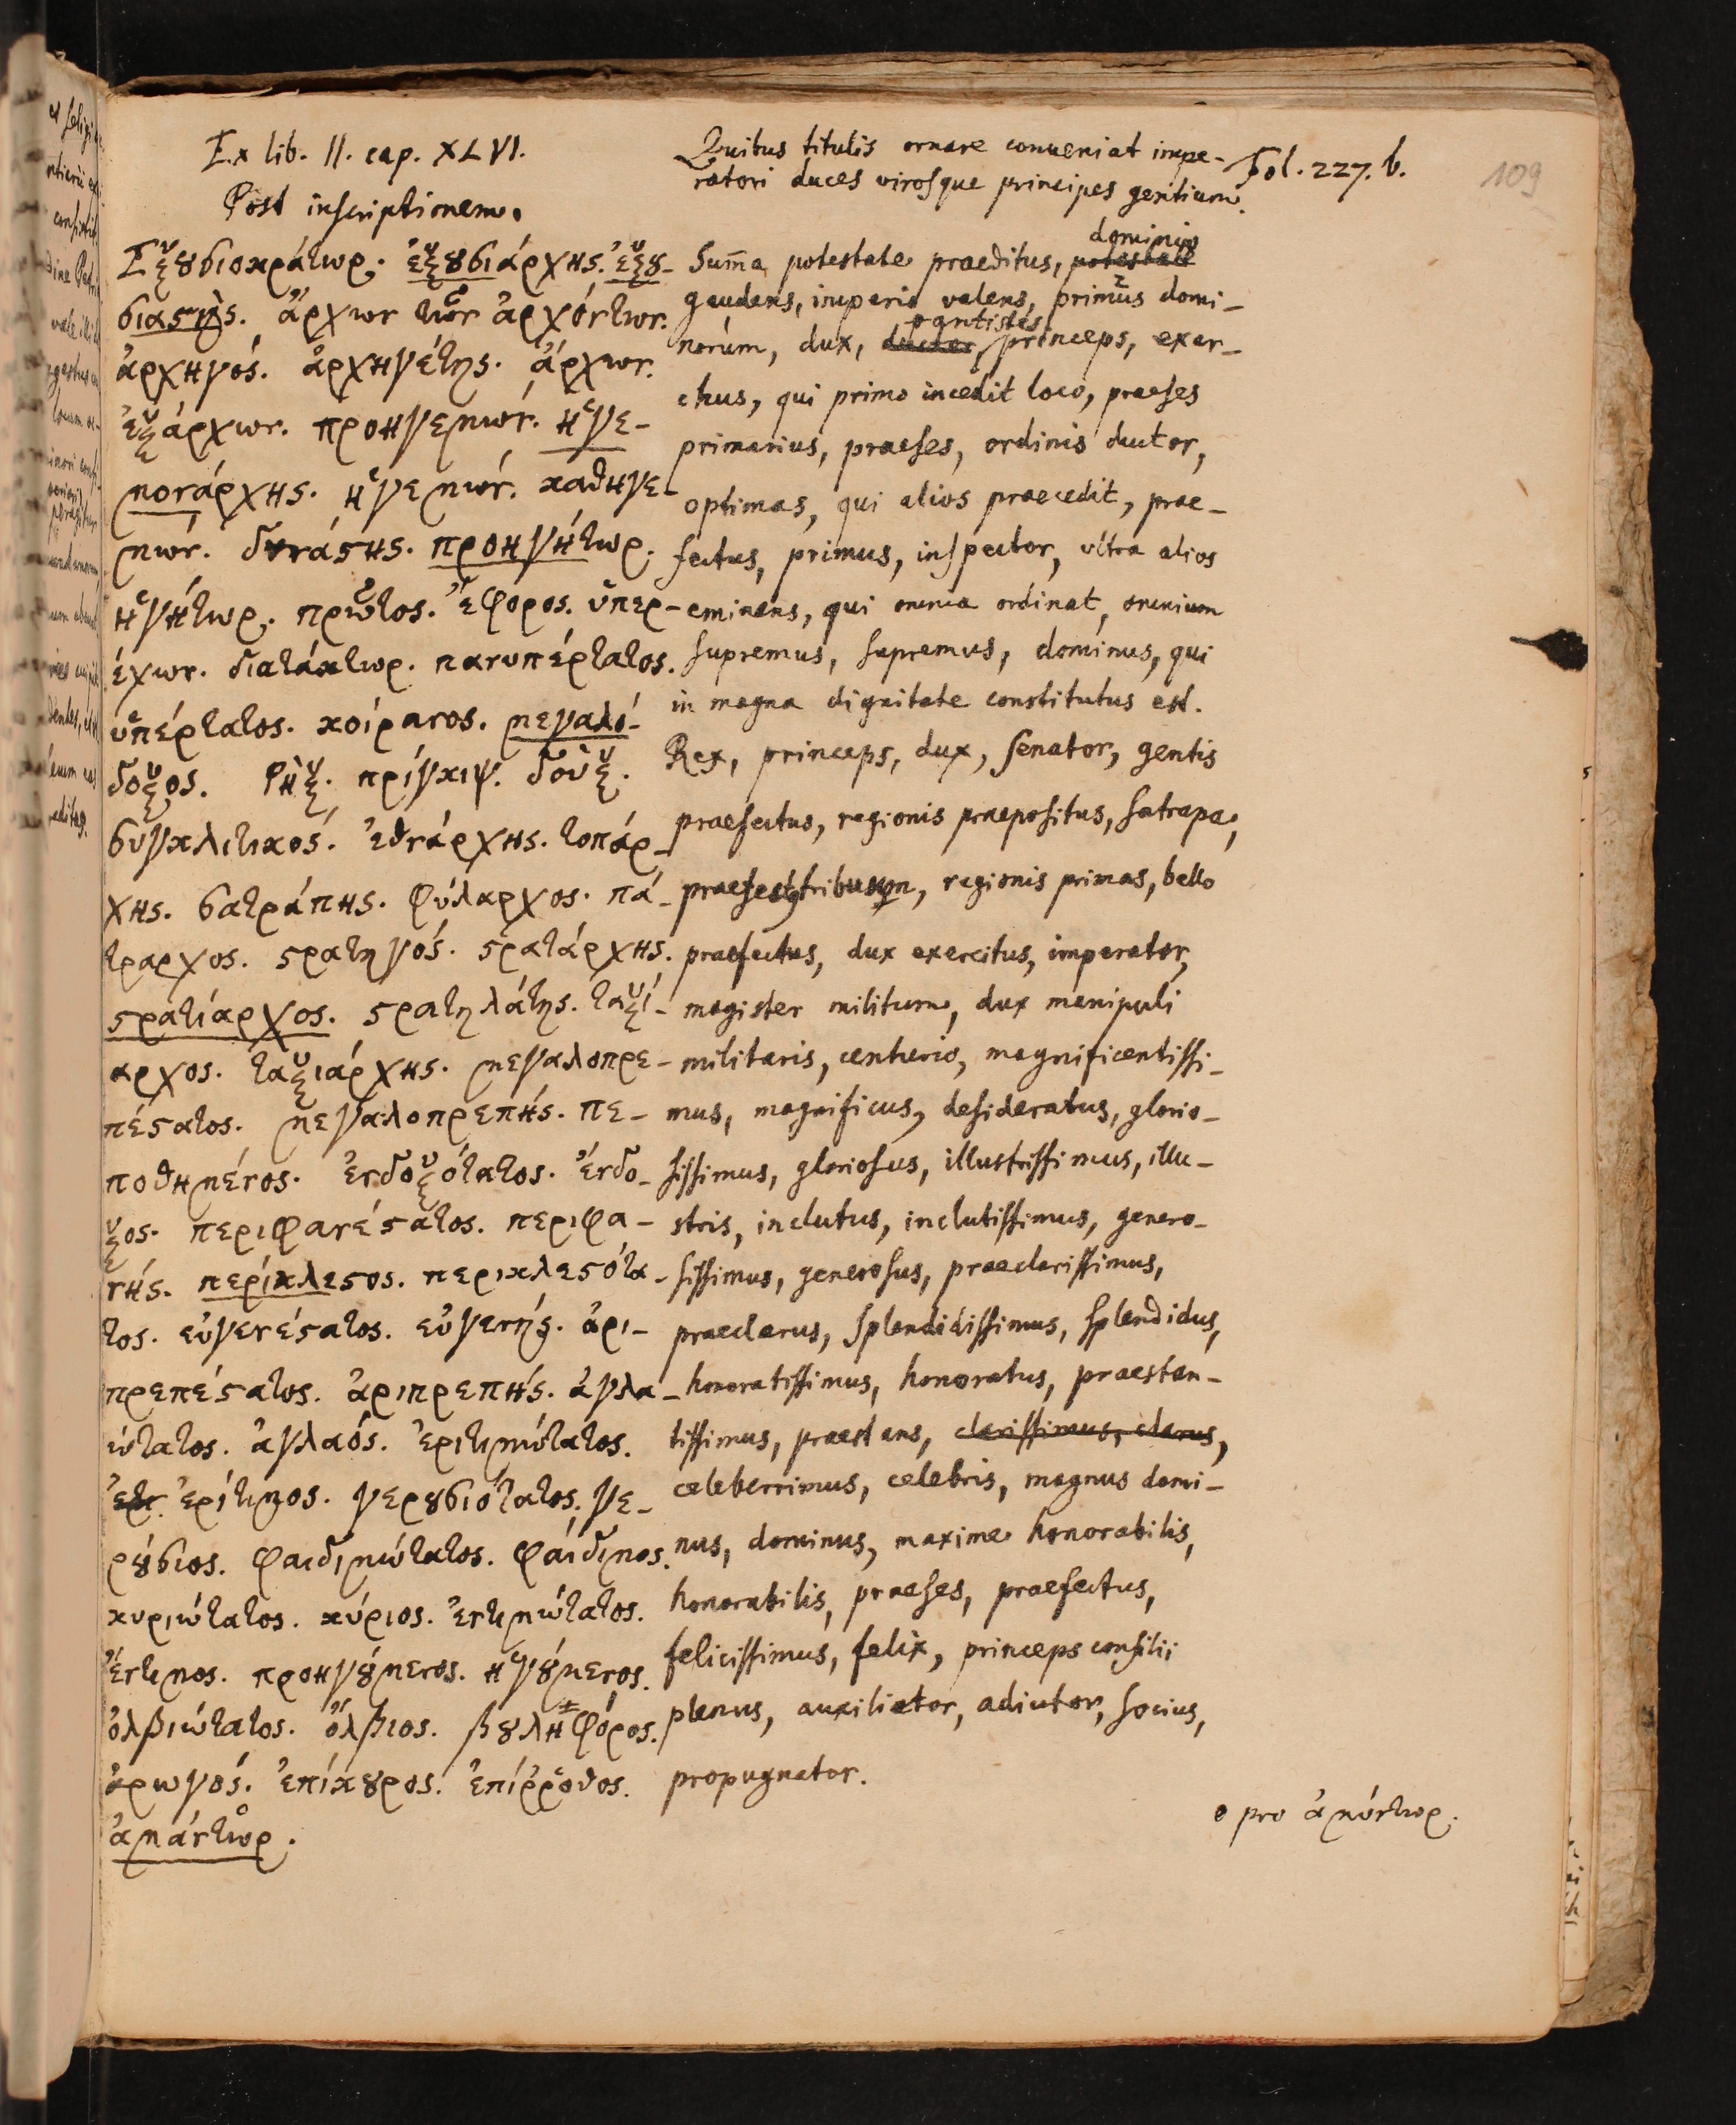 109
Ex lib. II. cap. XLVI.
Post inscriptionem.
Ἐξουσιοκράτωρ. ἐξουσιάρχης. ἐξου-
σιαστὴς. ἄρχων τῶν ἀρχόντων.
ἀρχηγός. ἀρχηγέτης. ἄρχων.
ἐξάρχων. προηγεμών. ἡγε-
μονάρχης. ἡγεμών. καθηγε-
μών. δυνάστης. προηγήτωρ.
ἡγήτωρ. πρῶτος. ἔφορος. ὑπερ-
έχων. διατάκτωρ. πανυπέρτατος.
ὑπέρτατος. κοίρανος. μεγαλό-
δοξος. Ρὴξ. πρίγκιψ. δοὺξ.
συγκλιτικός. ἐθνάρχης. τοπάρ-
χης. σατράπης. φύλαρχος. πά-
τραρχος. στρατηγός. στρατάρχης.
στρατίαρχος. στρατηλάτης. ταξί-
αρχος. ταξιάρχης. μεγαλοπρε-
πέστατος. μεγαλοπρεπής. πε-
ποθημένος. ἐνδοξότατος. ἔνδο-
ξος. περιφανέστατος. περιφα-
νής. περίκλεστος. περικλεστότα-
τος. εὐγενέστατος. εὐγενής. ἀρι-
πρεπέστατος. ἀριπρεπής. ἀγλα-
ώτατος. ἀγλαός. ἐριτιμώτατος.
ἐρίτιμος. γερουσιότατος. γε-
ρούσιος. φαιδιμώτατος. φαίδιμος.
κυριώτατος. κύριος. ἐντιμώτατος.
ἔντιμος. προηγούμενος. ἡγούμενος.
ὀλβιώτατος. ὄλβιος. βουλήφόρος.
ἀρωγός. ἐπίκουρος. ἐπίῤῥοθος.
ἀμάντωρ.
Quibus titulis ornare conueniat impe-
ratori duces virosque principes gentium.
Fol. 227. b.
Sum̄a potestate praeditus, potestate dominio
gaudens, imperio valens, primus domi-
norum, dux, ductor, antistes, princeps, exar-
chus, qui primo incedit loco, praeses
primarius, praeses, ordinis ductor,
optimas, qui alios praecedit, prae-
fectus, primus, inspector, vltra alios
eminens, qui omnia ordinat, omnium
supremus, supremus, dominus, qui
in magna dignitate constitutus est.
Rex, princeps, dux, senator, gentis
praefectus, regionis praepositus, satrapa,
praefectus tribuum, regionis primas, bello
praefectus, dux exercitus, imperator,
magister militum, dux manipuli
militaris, centurio, magnificentissi-
mus, magnificus, desideratus, glorio-
sissimus, gloriosus, illustrissimus, illu-
stris, inclutus, inclutissimus, genero-
sissimus, generosus, praeclarissimus,
praeclarus, splendidissimus, splendidus,
honoratissimus, honoratus, praestan-
tissimus, praestans, clarissimus, clarus,
celeberrimus, celebris, magnus domi-
nus, dominus, maxime honorabilis,
honorabilis, praeses, praefectus,
felicissimus, felix, princeps consilii
plenus, auxiliator, adiutor, socius,
propugnator.
o pro ἀμύντωρ.